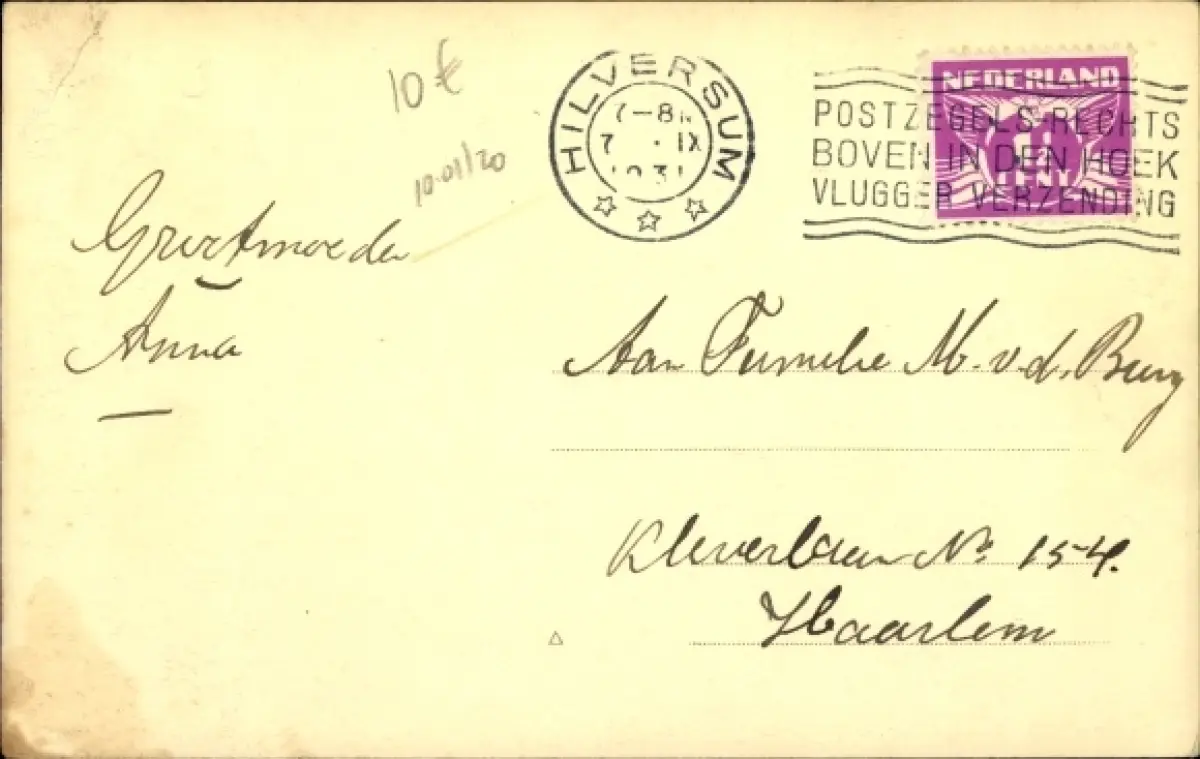 10 €
10.01/20
HILVERSUM
7-8
7 . IX
NEDERLAND
CENT
POSTZEGELS RECHTS
BOVEN IN DEN HOEK
VLUGGER VERZENDING
Grootmoeder
Anna
Aan Familie M. v. d. Burg
Kleverlaan No 154.
Haarlem